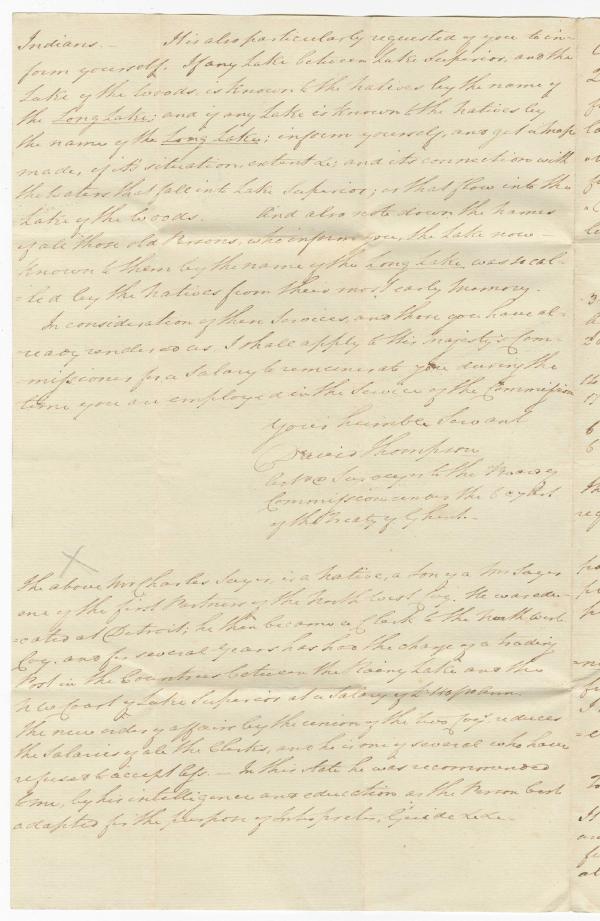 Indians. — It is also particularly requested of you to in-
form yourself. If any Lake between Lake Superior, and the
Lake of the Woods, is known to the Natives by the name of
the Long Lake; and if any Lake is known to the Natives by
the name of the Long Lake; inform yourself, and get a Map
made, of its situation, extent &c; and its connection with
the Waters that fall into Lake Superior; or that flow into the
Lake of the Woods. And also note down the names
of all those old Persons, who inform you, the Lake now —
known to them by the name of the Long Lake, was so cal-
-led by the Natives from their most early Memory.
In consideration of these Services, and those you have al-
-ready rendered us, I shall apply to His Majesty's Com-
-missioner for a Salary to remunerate you during the
time you are employed in the Service of the Commission
Your humble Servant
David Thompson
Astro Surveyor to the Boundary
Commission under the 6 & 7 Art
of the Treaty of Ghent.
The above Mr Charles Sayer, is a Native, a Son of a Mr Sayer
one of the first Partners of the North West Coy. He was edu-
-cated at Detroit; he then became a Clerk to the North West
Coy. and for several Years has had the charge of a trading
Post in the Countries between the Rainy Lake and the
N W Coast of Lake Superior at a Salary of per Ann.
The new order of affairs by the union of the two Coys reduces
the Salaries of all the Clerks, and he is one of several who have
refused to accept less. — In this state he was recommended
to me, by his intelligence and education as the Person best
adapted for the purpose of Interpreter, Guide &c &c.